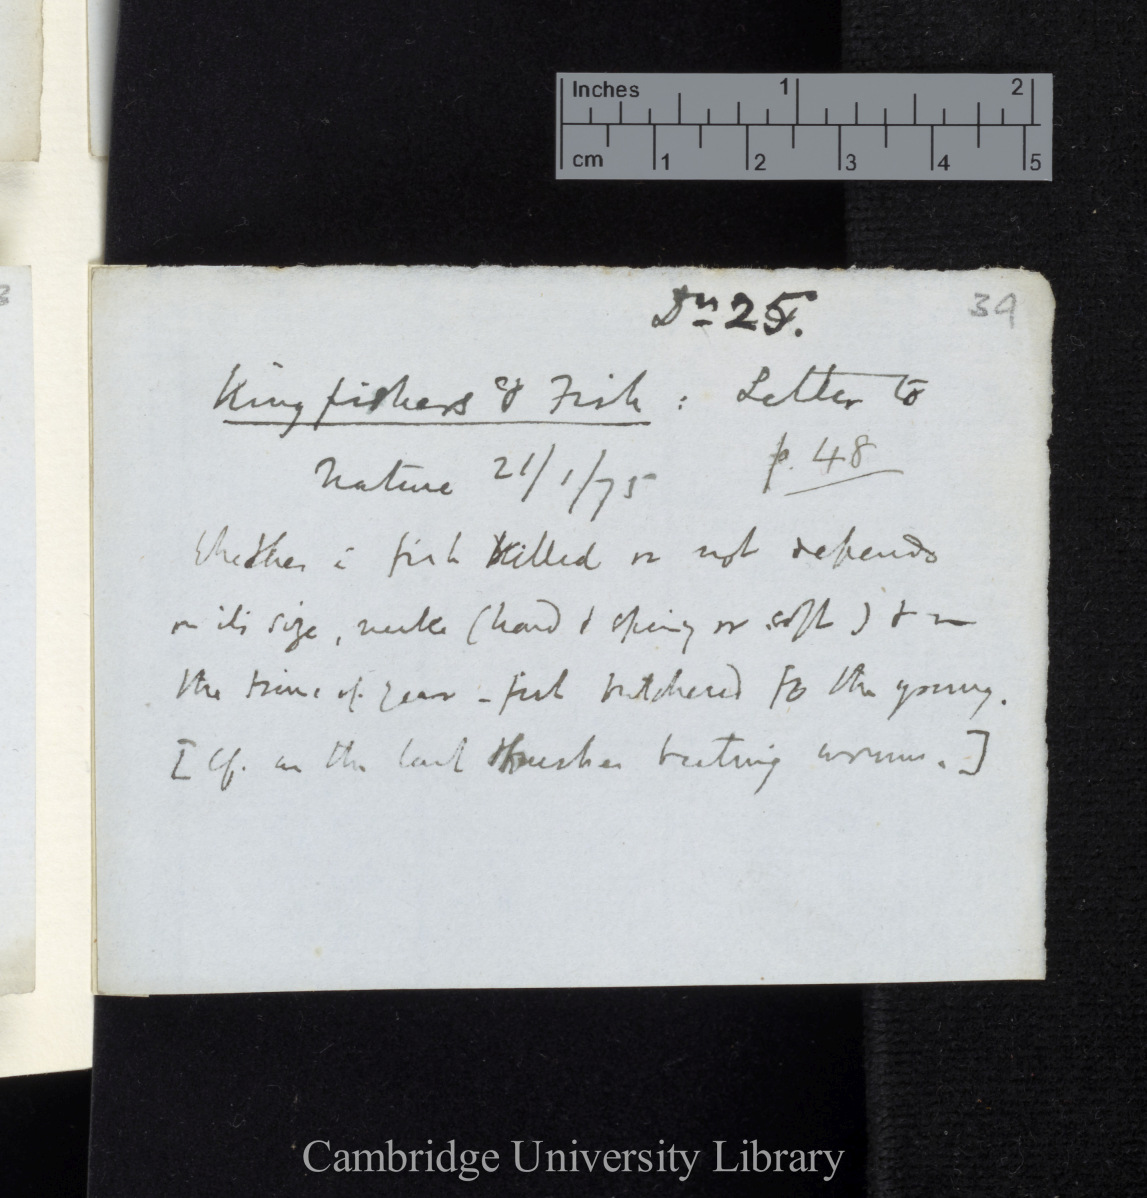 Inches 1 2
cm 1 2 3 4 5
Dn 25.
39
Kingfishers & Fish : Letter to
Nature 21/1/75 p. 48
Whether a fish killed or not depends
on its size, make (hard & spiny or soft) & on
the time of year - fish butchered for the young.
[Cf. in the thrushes beating worms.]
Cambridge University Library